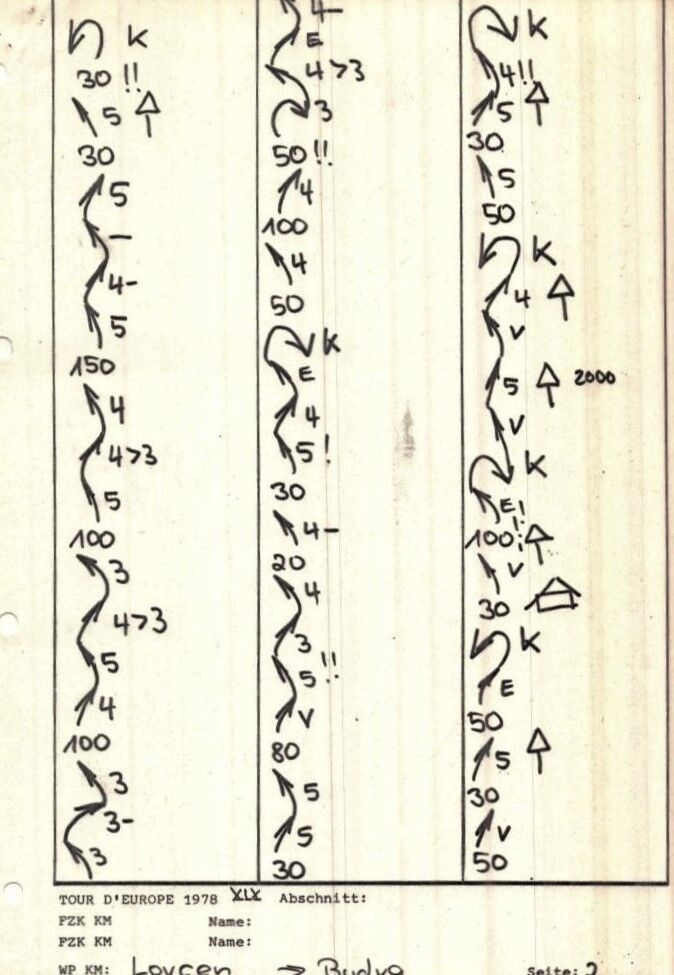 K
30 !!
5
30
5
–
4-
5
150
4
4>3
5
100
3
4>3
5
4
100
3
3-
3
4-
E
4>3
3
50!!
4
100
4
50
K
E
4
5!
30
4-
20
4
3
5!!
V
80
5
5
30
K
4!!
5
30
5
50
K
4
V
5 2000
V
K
E!
100!
V
30
K
E
50
5
30
V
50
TOUR D'EUROPE 1978 XLX Abschnitt:
FZK KM Name:
FZK KM Name:
WP KM: Lovcen → Budva Seite: 2